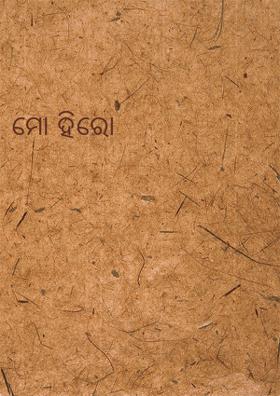 ମୋ ହିରୋ